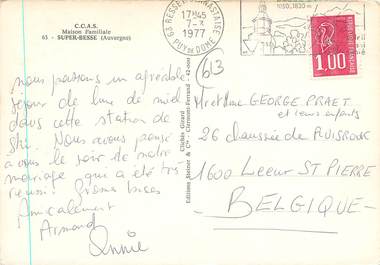 C.C.A.S.
Maison Familiale
63 - SUPER-BESSE (Auvergne)
nous passons un agréable
séjour de lune de miel
dans cette station de
Ski. Nous avons pensé
à vous le soir de notre
mariage qui a été très
réussi. Grosses bises
Amicalement
Armand
Annie
Clichés Girard
Editions 42-000
63 BESSE ANASTAISE
17H45
7-3
1977
PUY DE DOME
1050.1850 m
1,00
613
Mr et Mme GEORGE PRAET
et leurs enfants
26 chaussée de RUISBROEK
1600 Leeuw ST PIERRE
- BELGIQUE -